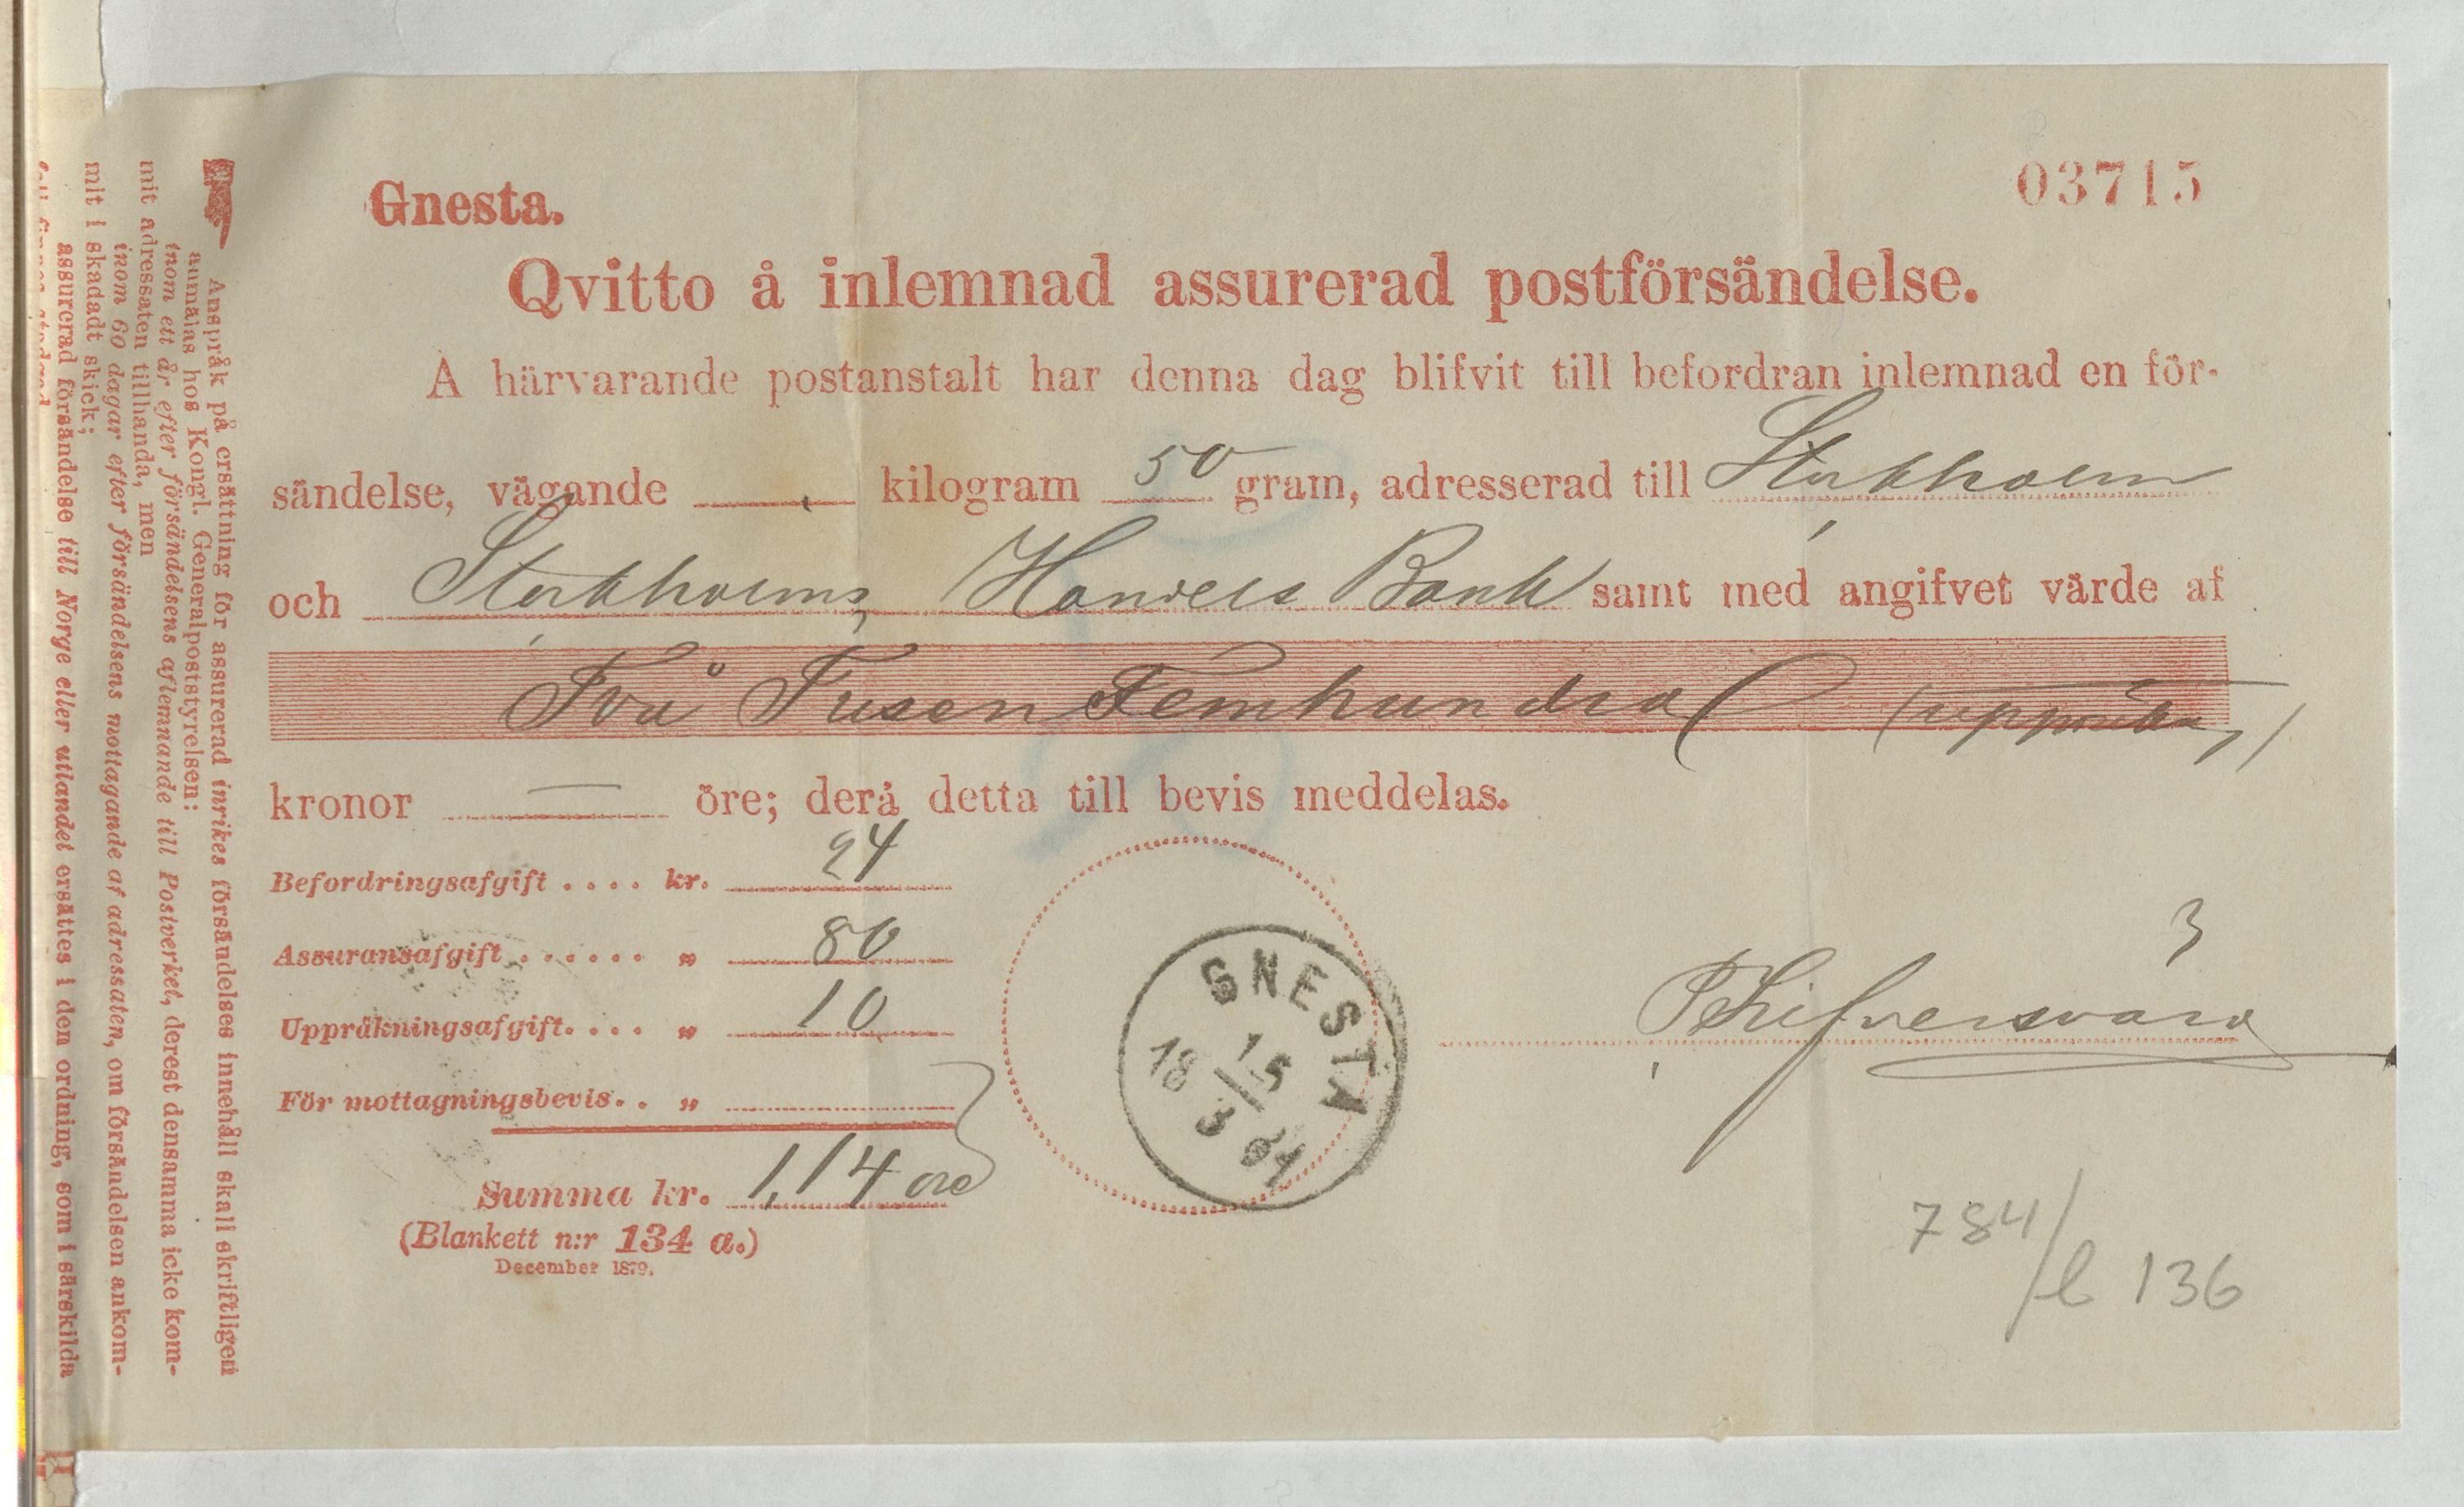 Gnesta.
03715
Qvitto å inlemnad assurerad postförsändelse.
Å härvarande postanstalt har denna dag blifvit till befordran inlemnad en för-
sändelse, vägande kilogram 50 gram, adresserad till Stockholm
och Stockholms Handels Bank samt med angifvet värde af
Två Tusen Femhundra
kronor — öre; derå detta till bevis meddelas.
Befordringsafgift .... kr. 24
Assuransafgift ...... „ 80
Uppräkningsafgift.... „ 10
För mottagningsbevis.. „
Summa kr. 1,14 öre
(Blankett n:r 134 a.)
December 1879.
GNESTA
18 15
3 81
784/b 136
Anspråk på ersättning för assurerad inrikes försändelses innehåll skall skriftligen
anmälas hos Kongl. Generalpoststyrelsen:
inom ett år efter försändelsens aflemnande till Postverket, derest densamma icke kom-
mit adressaten tillhanda, men
inom 60 dagar efter försändelsens mottagande af adressaten, om försändelsen ankom-
mit i skadadt skick;
assurerad försändelse till Norge eller utlandet ersättes i den ordning, som i särskilda